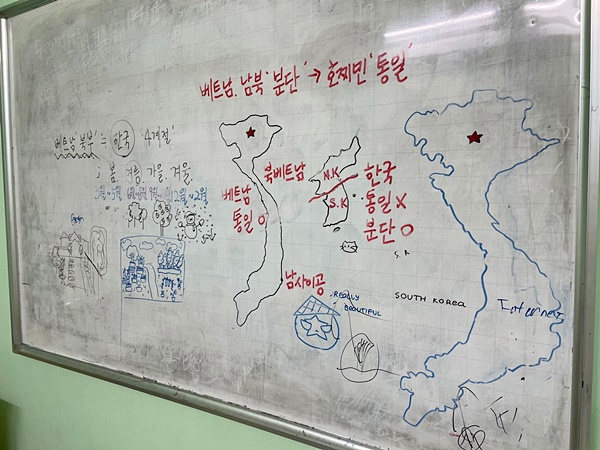 베트남. 남북 '분단' → 호찌민 '통일'
베트남 북부 = 한국 '4계절'
; 봄 여름 가을 겨울
베트남
통일 O
북베트남
N.K.
S.K
한국
통일 X
분단 O
S.K
남사이공
REALLY
BEAUTIFUL
SOUTH KOREA
Internet